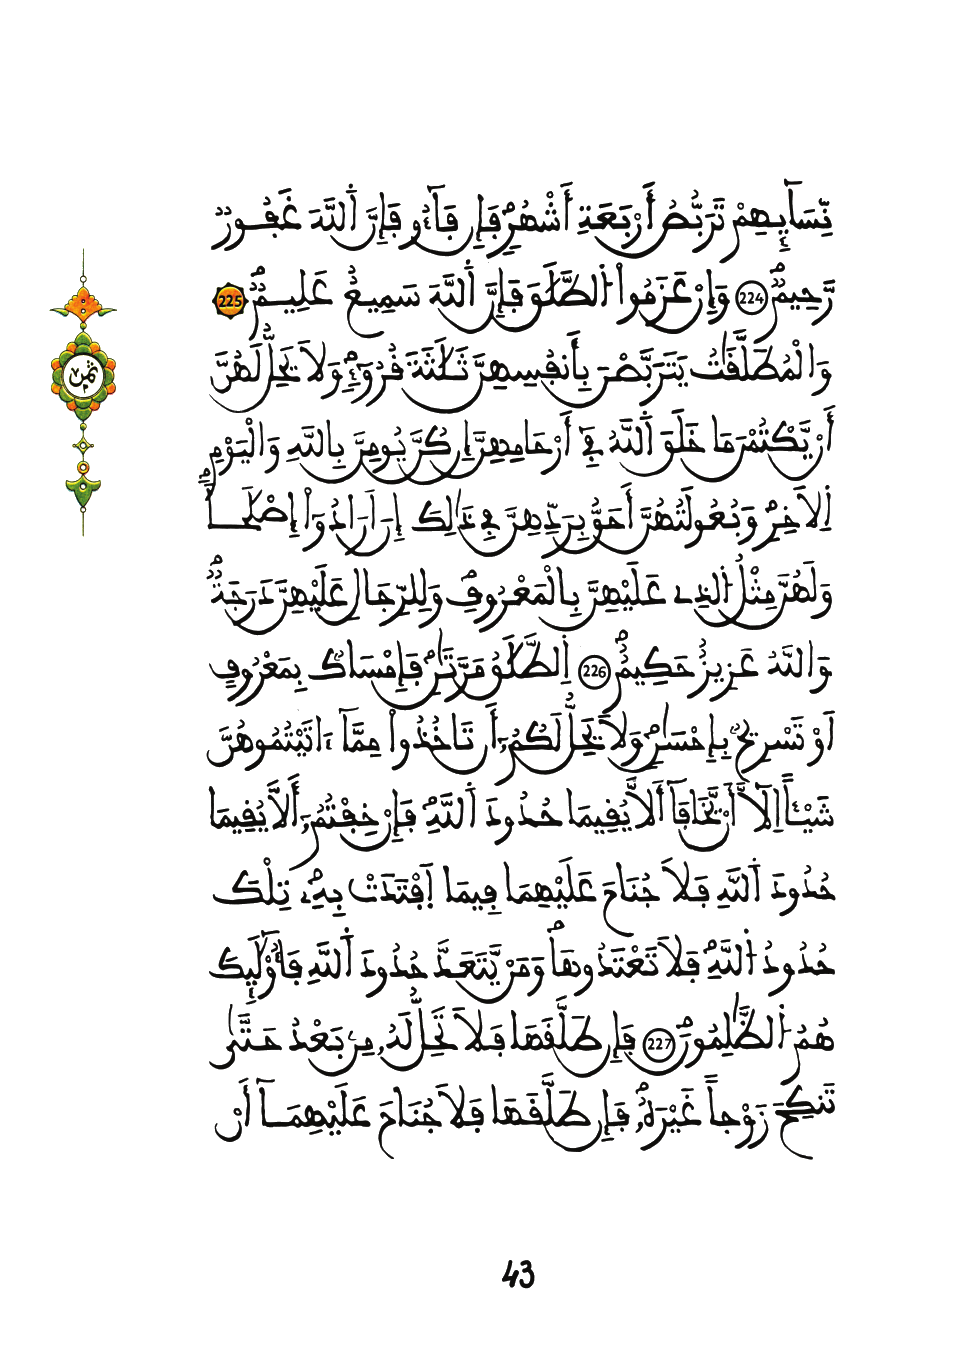 نِّسَآئِهِمْ تَرَبُّصُ أَرْبَعَةِ أَشْهُرٍ فَإِن فَآءُو فَإِنَّ اَ۬للَّهَ غَفُورٞ
رَّحِيمٞ 224 وَإِنْ عَزَمُواْ اُ۬لطَّلَٰقَ فَإِنَّ اَ۬للَّهَ سَمِيعٌ عَلِيمٞ 225
ثمن
وَالْمُطَلَّقَٰتُ يَتَرَبَّصْنَ بِأَنفُسِهِنَّ ثَلَٰثَةَ قُرُوٓءٖ وَلَا يَحِلُّ لَهُنَّ
أَنْ يَّكْتُمْنَ مَا خَلَقَ اَ۬للَّهُ فِےٓ أَرْحَامِهِنَّ إِن كُنَّ يُومِنَّ بِاللَّهِ وَالْيَوْمِ
اِ۬لَاخِرِ وَبُعُولَتُهُنَّ أَحَقُّ بِرَدِّهِنَّ فِے ذَٰلِكَ إِنَ اَرَادُوٓاْ إِصْلَٰحاٗ
وَلَهُنَّ مِثْلُ اُ۬لذِے عَلَيْهِنَّ بِالْمَعْرُوفِ وَلِلرِّجَالِ عَلَيْهِنَّ دَرَجَةٞ
وَاللَّهُ عَزِيزٌ حَكِيمٌ 226 اِ۬لطَّلَٰقُ مَرَّتَٰنِ فَإِمْسَاكُۢ بِمَعْرُوفٍ
اَوْ تَسْرِيحُۢ بِإِحْسَٰنٖ وَلَا يَحِلُّ لَكُمُۥٓ أَن تَاخُذُواْ مِمَّآ ءَاتَيْتُمُوهُنَّ
شَيْـٔاً اِلَّآ أَنْ يَّخَافَآ أَلَّا يُقِيمَا حُدُودَ اَ۬للَّهِ فَإِنْ خِفْتُمُۥٓ أَلَّا يُقِيمَا
حُدُودَ اَ۬للَّهِ فَلَا جُنَاحَ عَلَيْهِمَا فِيمَا اَ۪فْتَدَتْ بِهِۦ تِلْكَ
حُدُودُ اُ۬للَّهِ فَلَا تَعْتَدُوهَا وَمَنْ يَّتَعَدَّ حُدُودَ اَ۬للَّهِ فَأُوْلَٰٓئِكَ
هُمُ اُ۬لظَّٰلِمُونَ 227 فَإِن طَلَّقَهَا فَلَا تَحِلُّ لَهُۥ مِنۢ بَعْدُ حَتَّىٰ
تَنكِحَ زَوْجاً غَيْرَهُۥ فَإِن طَلَّقَهَا فَلَا جُنَاحَ عَلَيْهِمَآ أَنْ
43